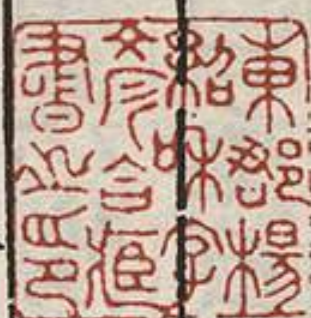 東郡楊
紹和字
彥合藏
書之印